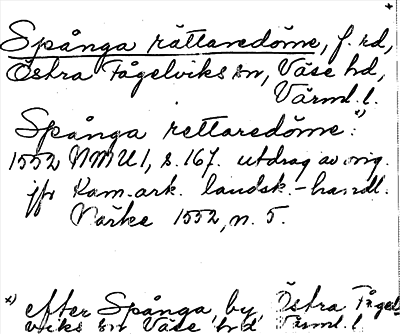 Spånga rättaredöme, f. rd,
Östra Fågelviks sn, Väse hd,
Värml. l.
Spånga rettaredöme x)
1552 NMU 1, s. 167. utdrag av orig.
jfr Kam.ark. landsk.-handl.
Närke 1552, n. 5.
x) efter Spånga, by, Östra Fågel-
viks sn Väse hd Värml. l.